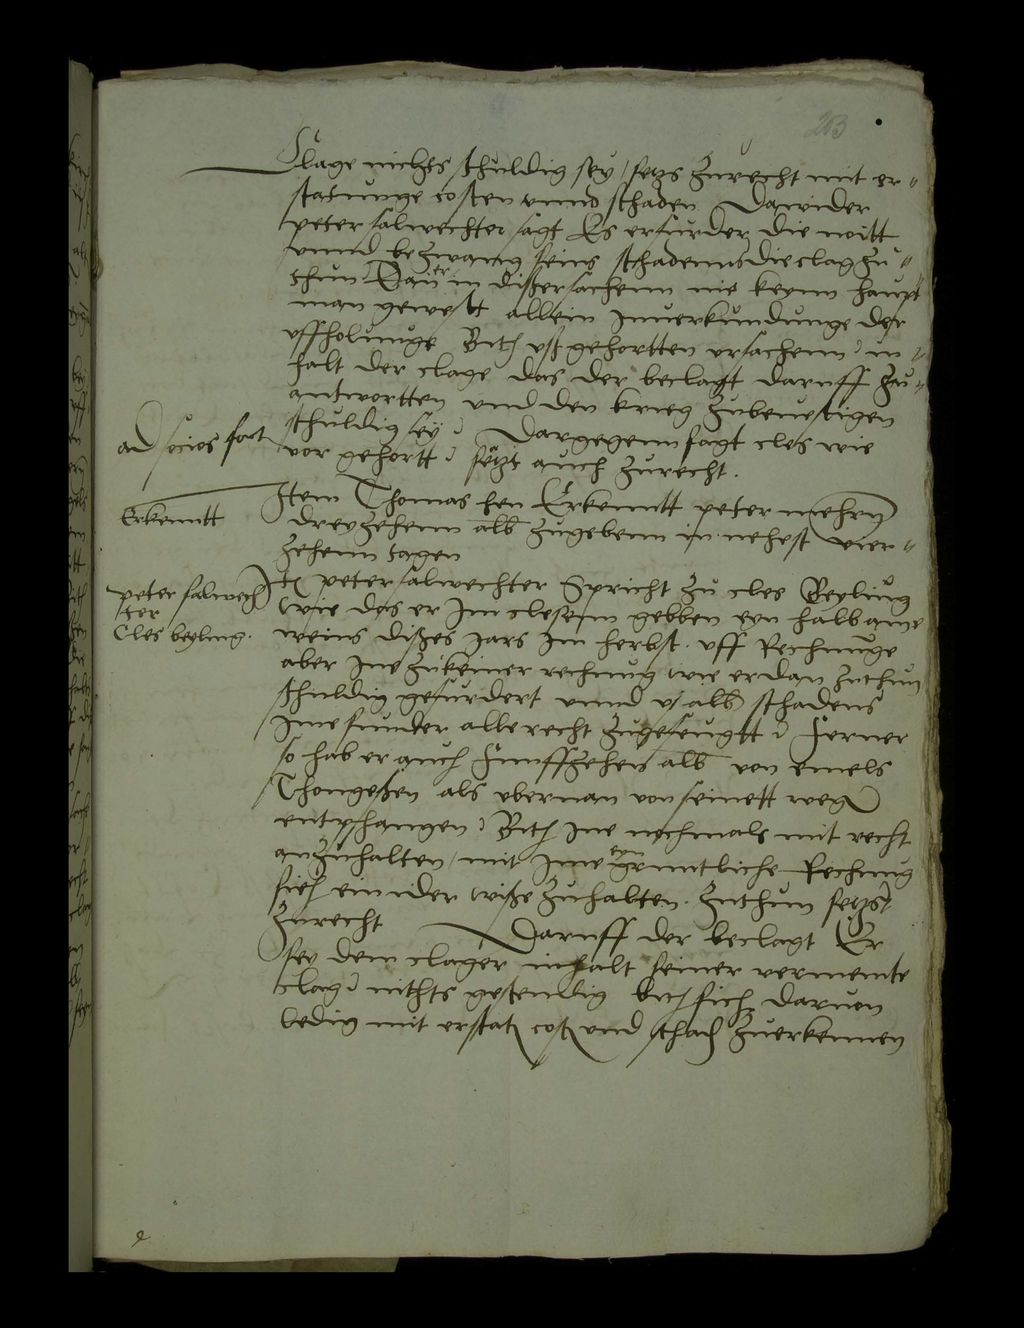 263
Clage nichts schuldig sey / setzs zurecht mit er-
statunge costen vnnd schaden Dawider
peter salwechter sagt Es erfurder die nott
vnnd bezwang seins schadenns die clag zu
thun Dan er in disser sachenn nie keynn haupt
man gewest allein In verkundunge der
vffholunge Bith vß gehortten vrsachenn in-
halt der clage das der beclagt daruff zu
antwortten vnd den krieg zubeuestigen
schuldig sey Dargegenn sagt cles wie
vor gehortt setzt auch zurecht.
ad socios fact
Erkenntt
Item Thomas hen Erkenntt peter
dreyzehenn alb zugebenn in nehest vier-
zehenn tagen
peter salwech
ter
Cles beyling.
It peter salwechter Spricht zu cles Beyling
wie das er Im clesenn gebben eyn halb ame
weins dißes Jars Im herbst. vff Rechnuge
aber Ine zu keiner rechnug wie er dan zuthun
schuldig gefurdert vnnd vj alb schadens
Ime hunder alle recht zugefeugtt Ferner
so hab er auch Funffzehen alb von emels
Thongeßen als vberman von seinett weg
entphangen Bith Ine nochmals mit recht
anzuhalten / mit Ime eyn gruntliche Rechnug
sich ein ider wiße zuhalten. Zuthun setzst
zurecht Daruff der beclagt Er
sey dem clager inhalt seiner vermeinte
clag nichts gestendig bith sich daruon
ledig mit erstat cost vnd schad zuerkennen